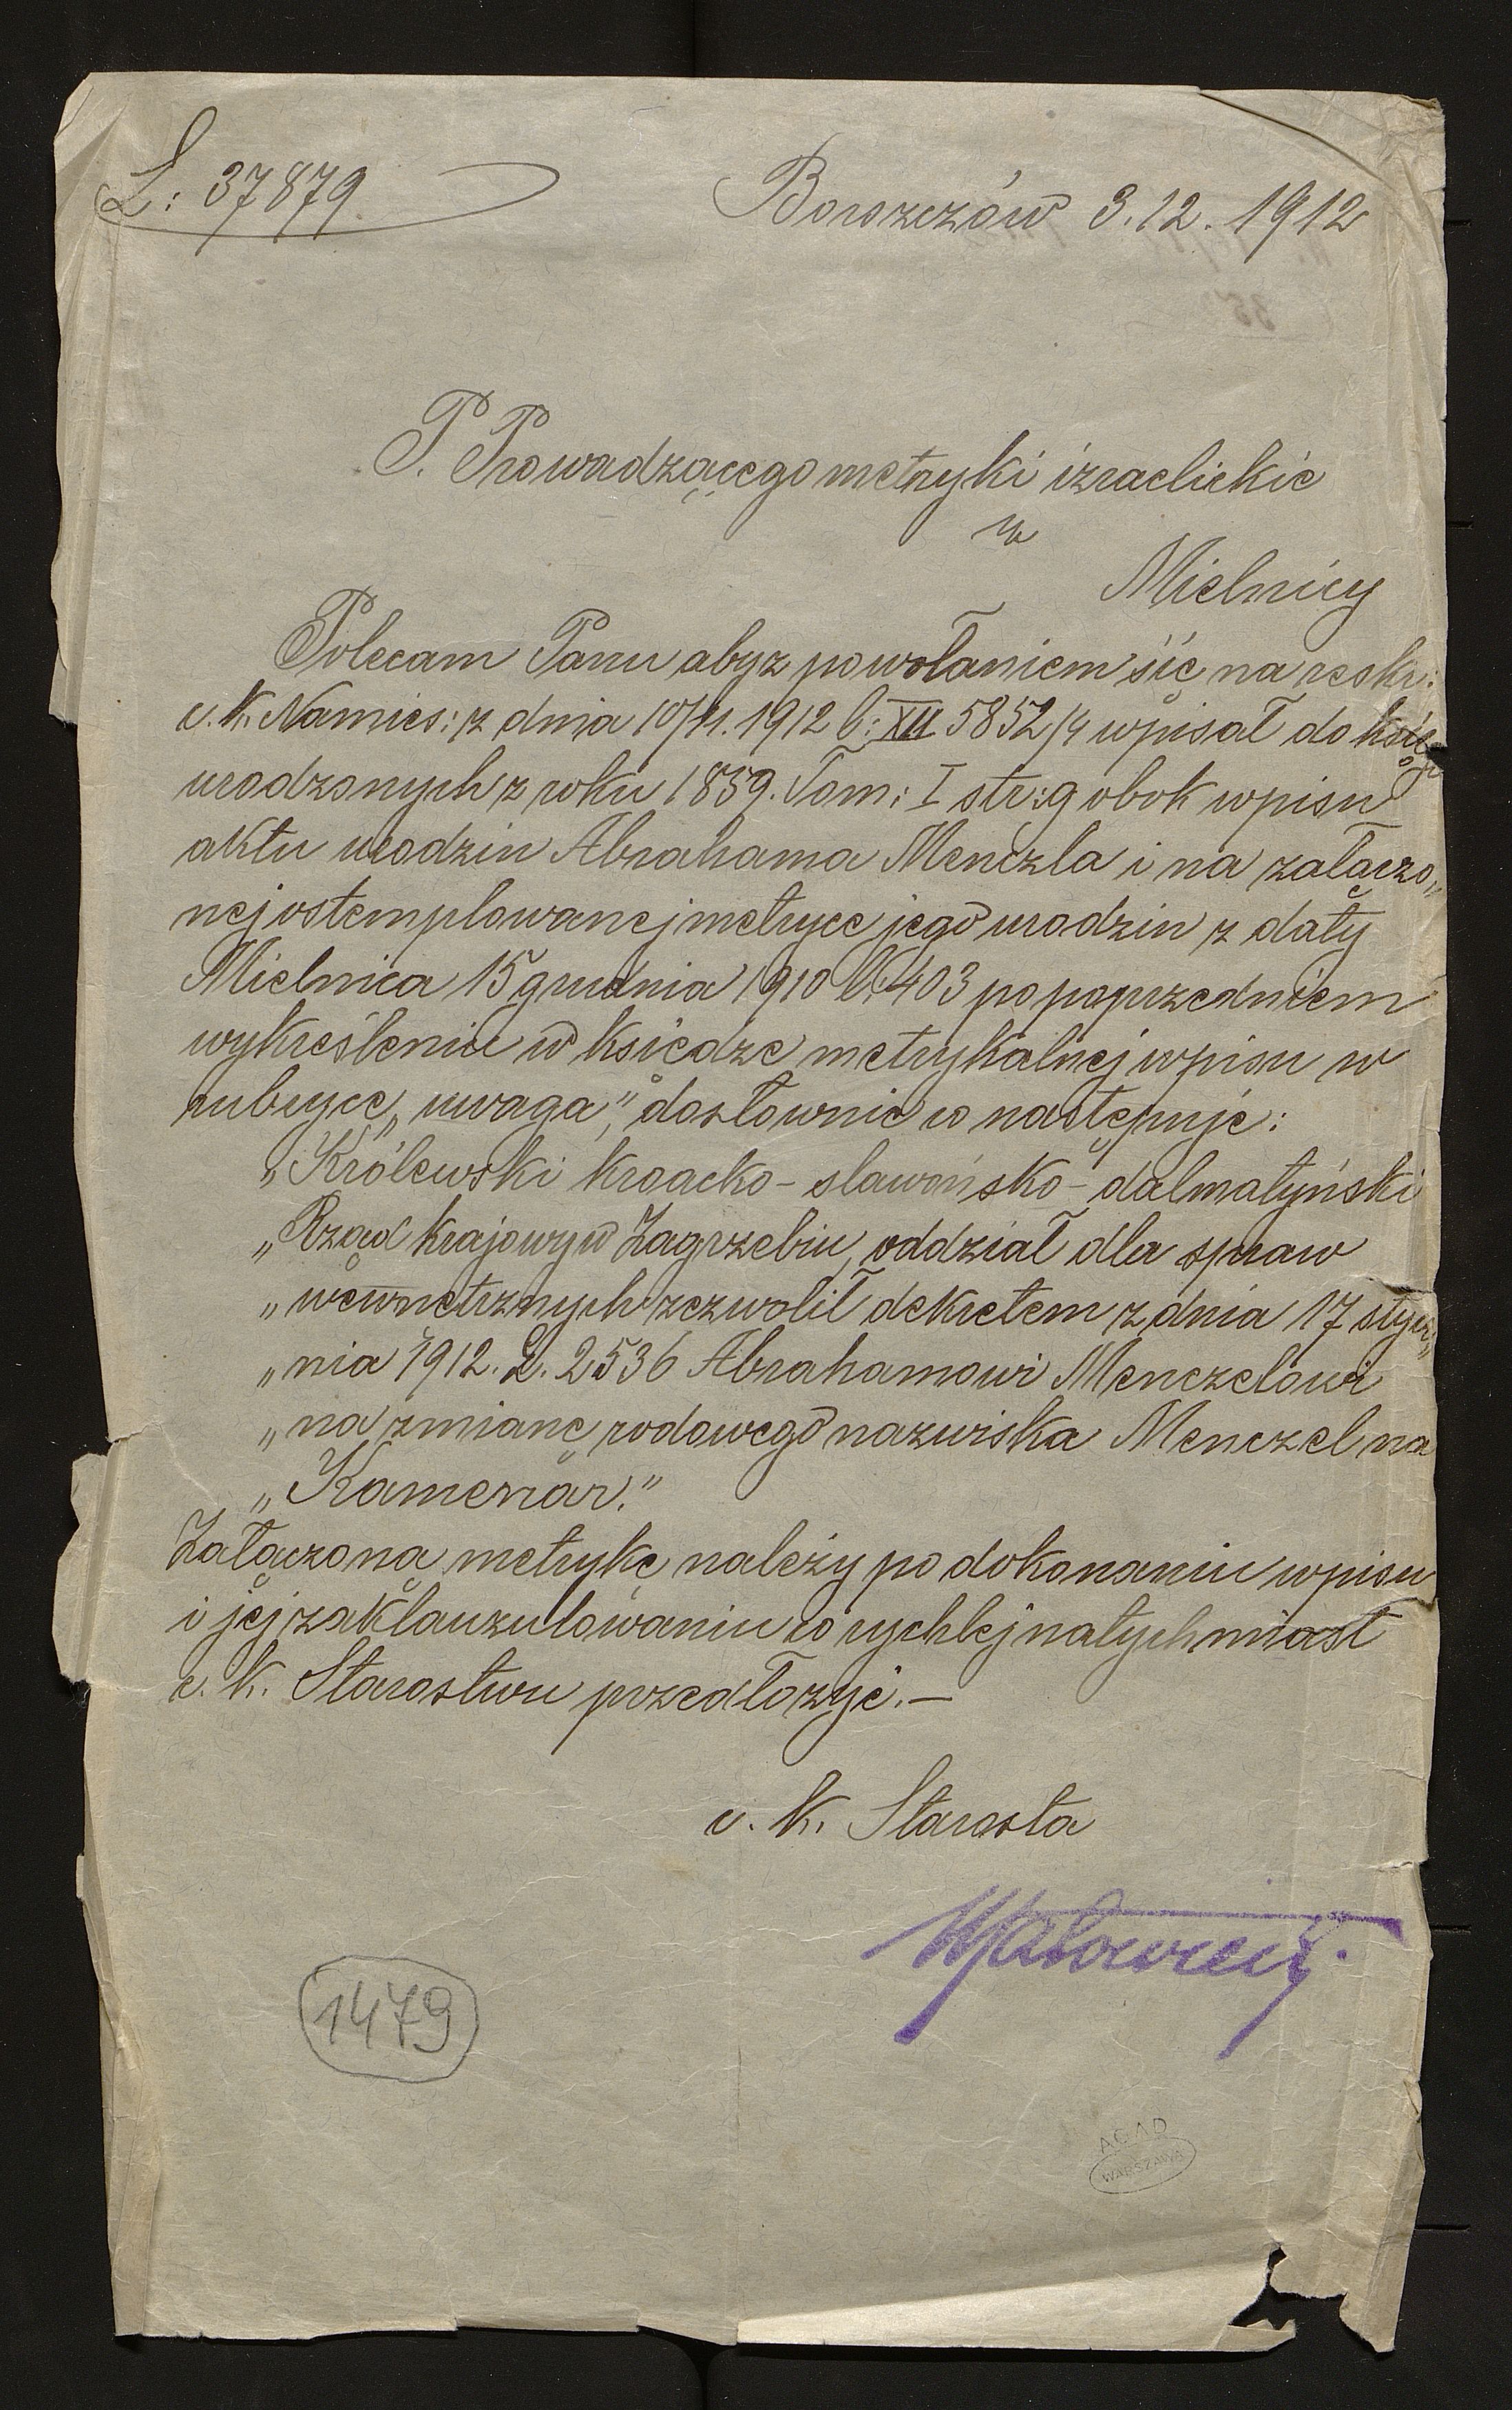 L: 37879
Borszczów 3.12.1912
P. Prowadzącego metryki izraelickie
w
Mielnicy
Polecam Panu aby z powołaniem się na reskr:
c. k. Namies: z dnia 10/11. 1912 l: XII 5852/4 wpisał do księg
urodzonych z roku 1859. Tom: I str: 9 obok wpisu
aktu urodzin Abrahama Menczla i na załączo„
nej ostemplowanej metryce jego urodzin z daty
Mielnica 15 grudnia 1910 l: 403 po poprzedniem
wykreśleniu w księdze metrykalnej wpisu w
rubryce „uwaga”, dosłownie co następuje:
„Królewski kroacko-slawońsko-dalmatyński
„Rząd krajowy w Zagrzebiu, oddział dla spraw
„wewnętrznych zezwolił dekretem z dnia 17 stycz„
„nia 1912. L. 2536 Abrahamowi Menczelowi
„na zmianę rodowego nazwiska Menczel na
„Kamenar.”
Załączoną metrykę należy po dokonaniu wpisu
i jej zaklauzulowaniu co rychlej natychmiast
c. k. Starostwu przedłożyć.—
c. k. Starosta
1479
AGAD
WARSZAWA